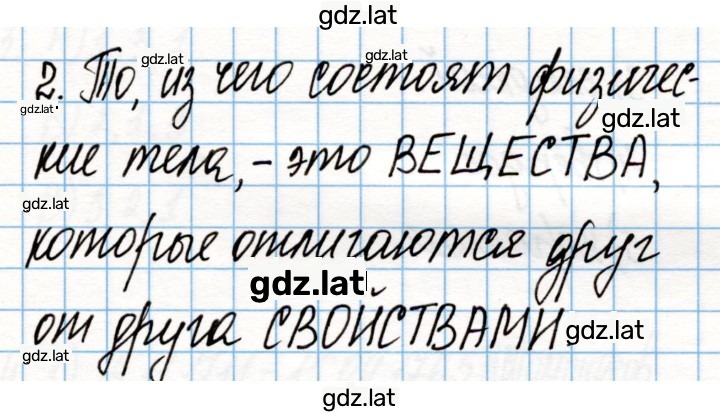 gdz.lat
gdz.lat gdz.lat
2. То, из чего состоят физичес-
gdz.lat gdz.lat
кие тела, - это ВЕЩЕСТВА,
gdz.lat
которые отличаются друг
gdz.lat
от друга СВОЙСТВАМИ.
gdz.lat gdz.lat
gdz.lat